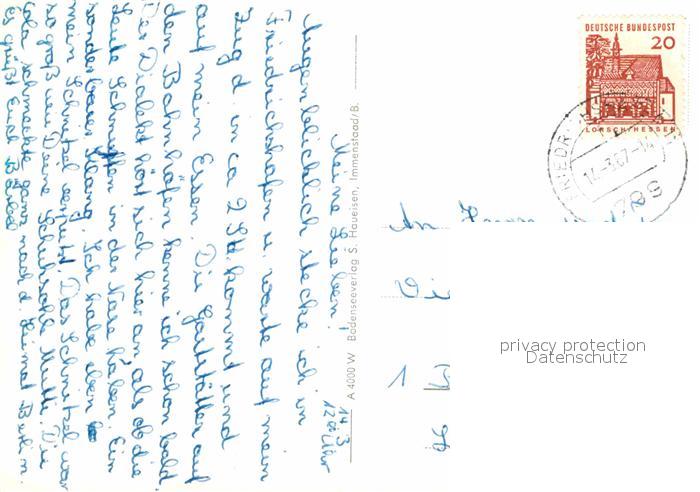 14.3.
12 00 Uhr
Meine Lieben!
Augenblicklich stecke ich in
Friedrichshafen u. warte auf mein
Zug d. in ca 2 Std. kommt und
auf mein Essen. Die Gaststätten auf
den Bahnhöfen kenne ich schon bald
Der Dialekt hört sich hier an als ob die
Leute Schnupfen in der Nase haben. Ein
sonderbarer Klang. Ich habe eben
mein Schnitzel verputzt. Das Schnitzel war
so groß wie Deine Schuhsohle Mutti. Die
Cola schmeckte ganz nach d. Heimat Berlin.
Es grüßt Euch Bärbel
A 4000 W Bodenseeverlag S. Haueisen, Immenstaad/B.
DEUTSCHE BUNDESPOST
20
LORSCH/HESSEN
14-3.67-14
799
An
privacy protection
Datenschutz